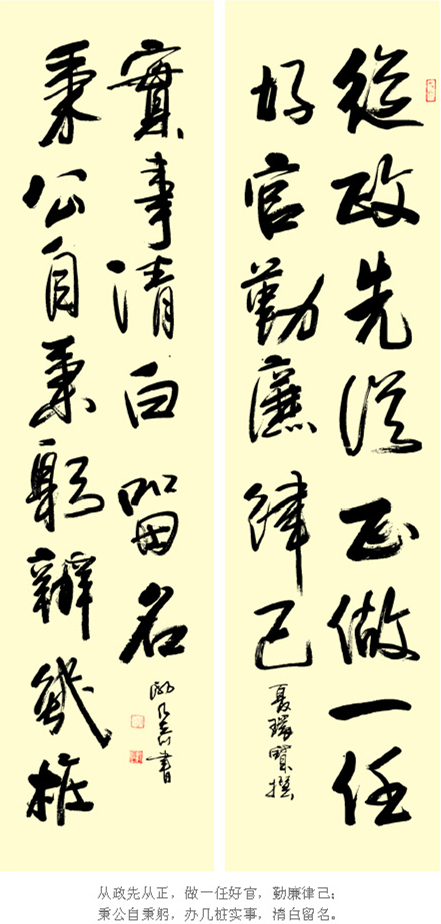 從政先從正做一任
好官勤廉律己
撰
秉公自秉躬辦幾桩
實事清白留名
書
从政先从正，做一任好官，勤廉律己；
秉公自秉躬，办几桩实事，清白留名。